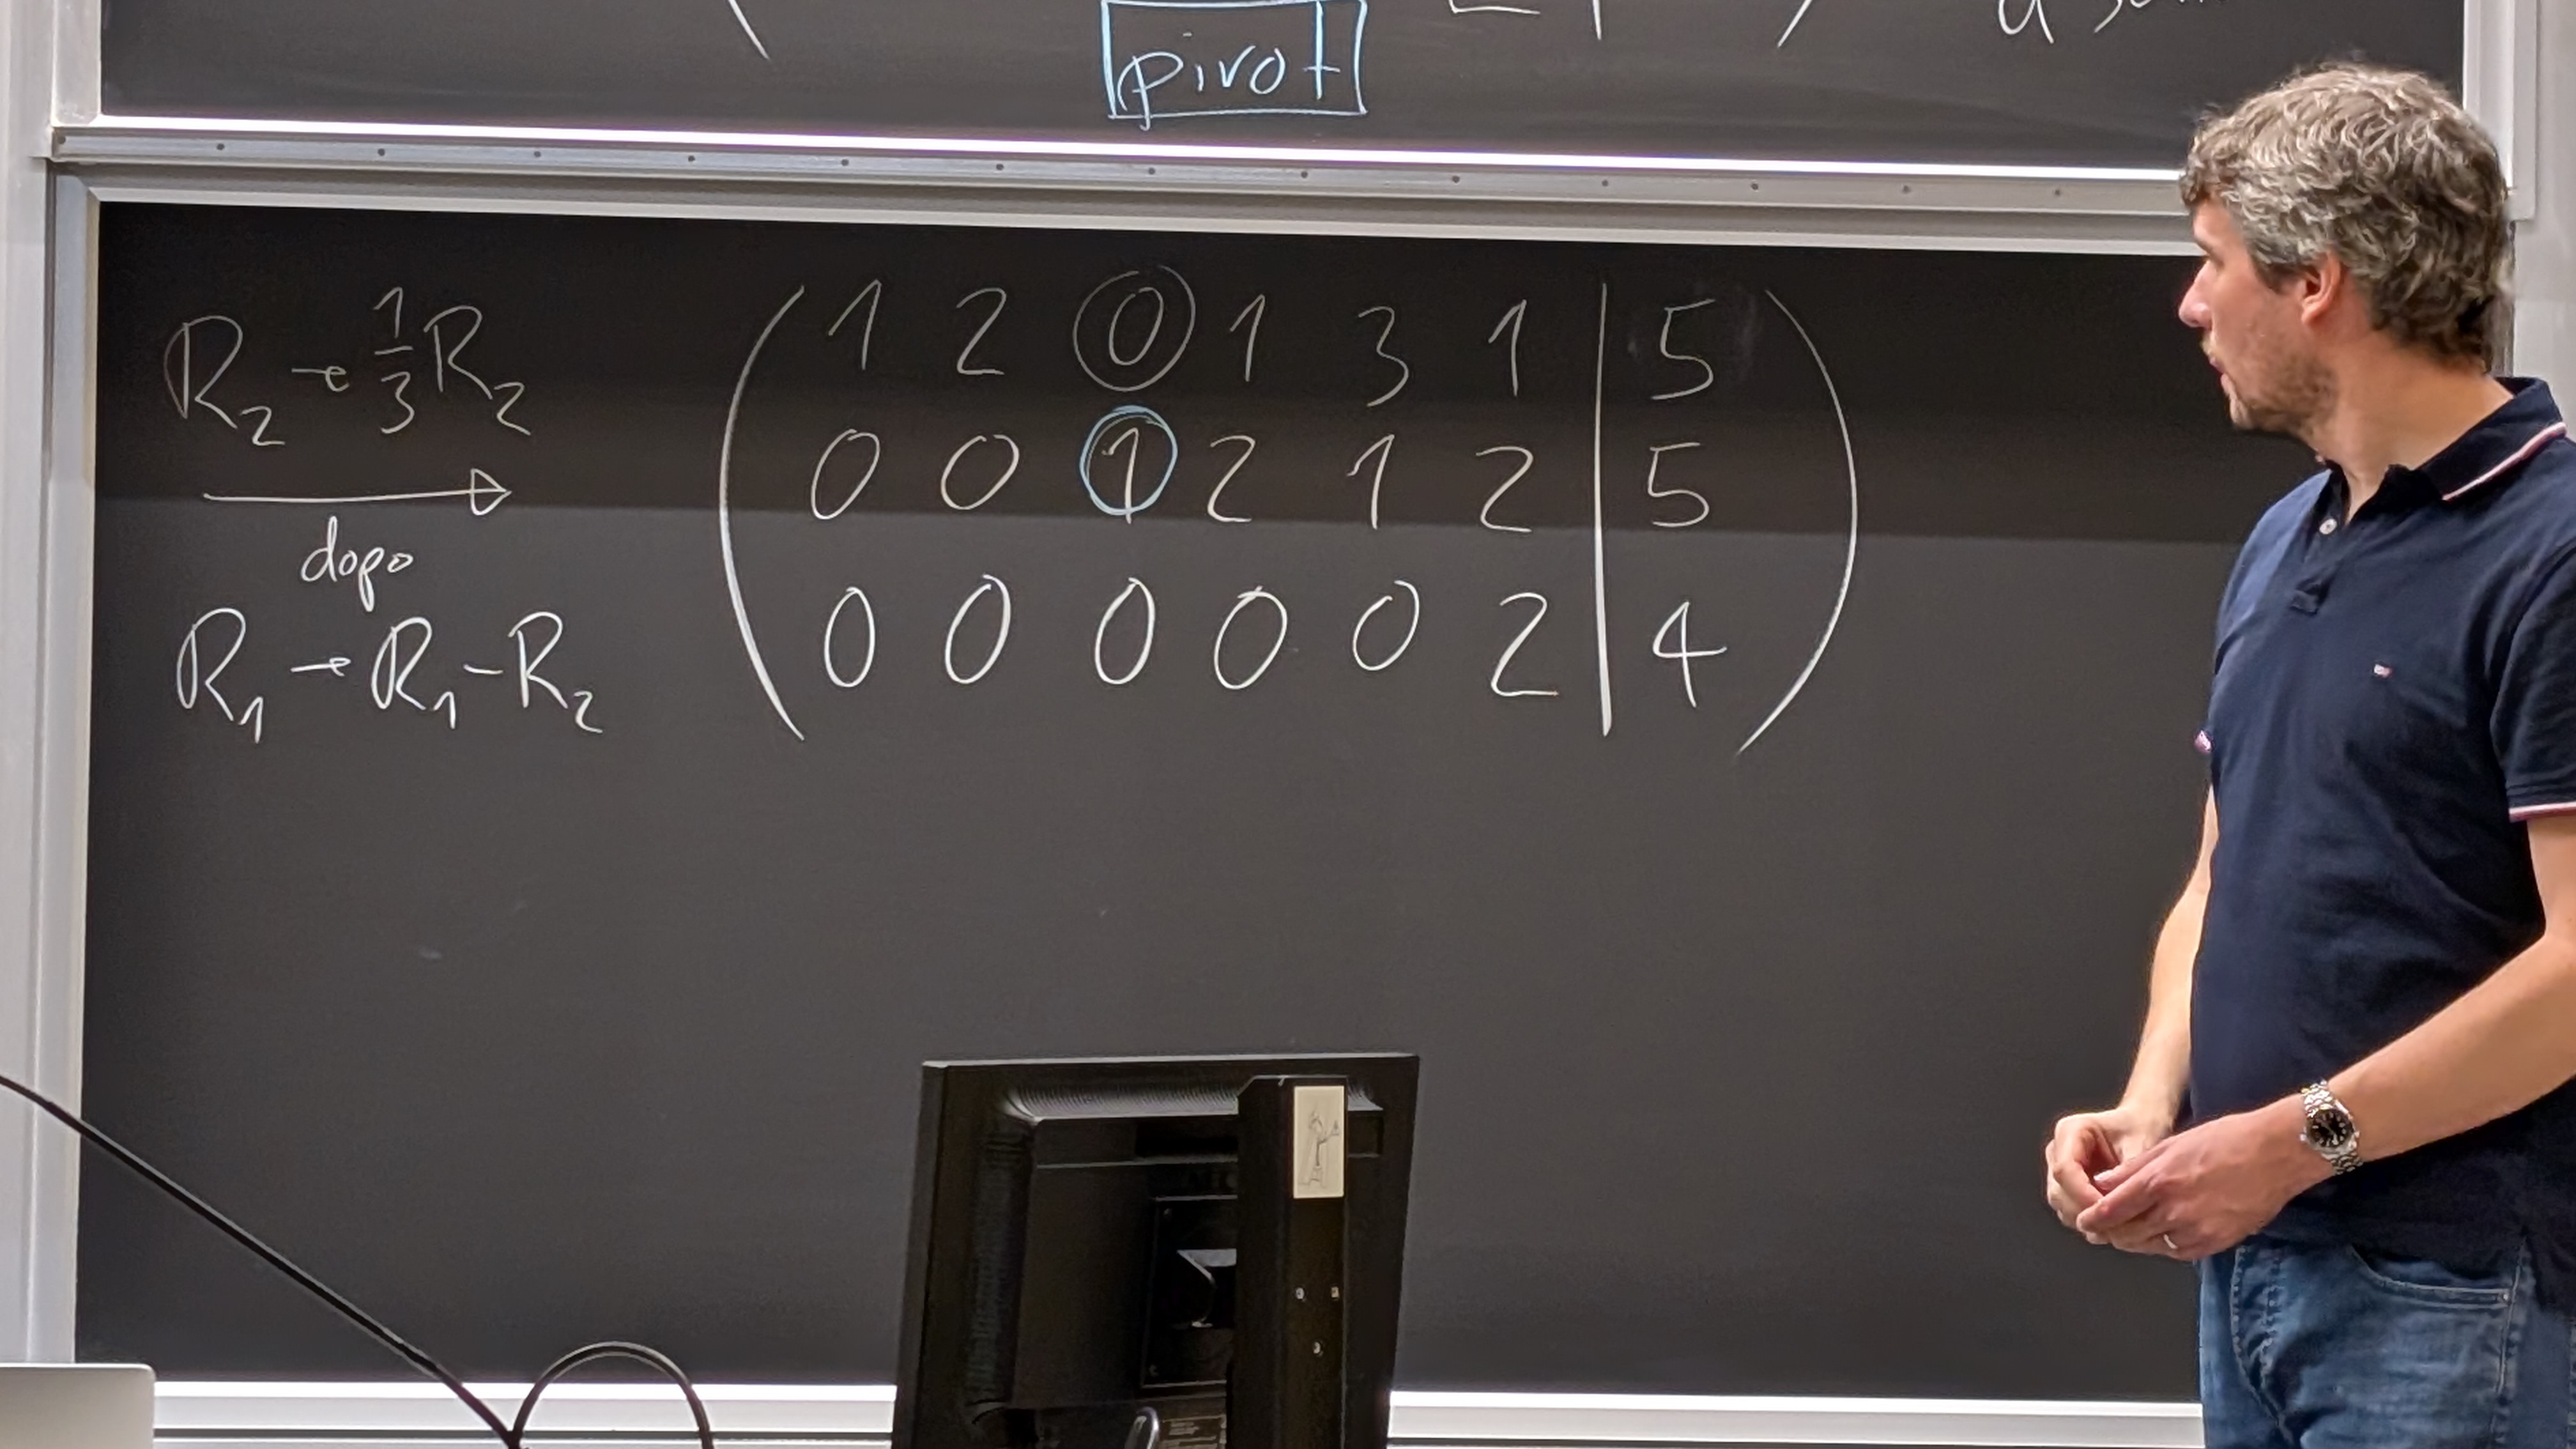 pivot
R₂ → 1/3 R₂
dopo
R₁ → R₁ - R₂
1 2 0 1 3 1 | 5
0 0 1 2 1 2 | 5
0 0 0 0 0 2 | 4